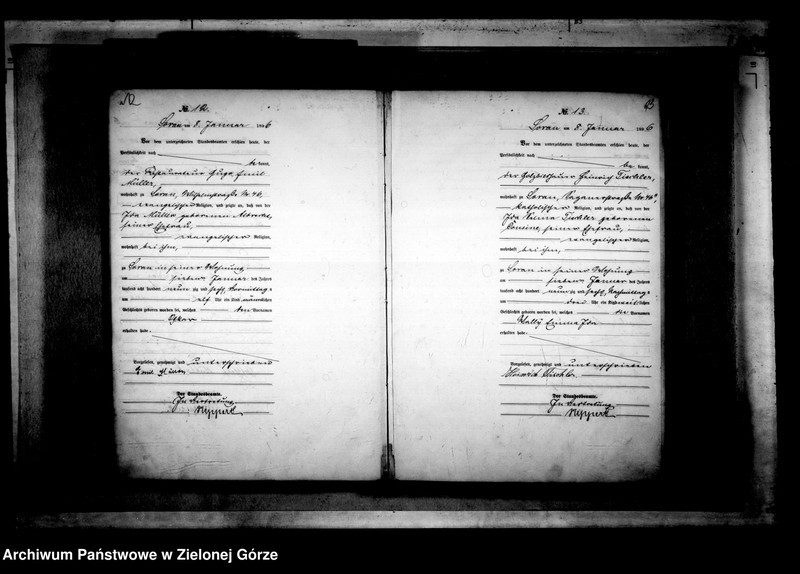 № 12.
Sorau am 8. Januar 1896
Vor dem unterzeichneten Standesbeamten erschien heute, der
Persönlichkeit nach
be kannt,
der Hugo Emil
Müller,
wohnhaft zu Sorau, Nr. 46,
evangelischer Religion, und zeigte an, daß von der
Ida Müller geborenen
seiner Ehefrau,
evangelischer Religion,
wohnhaft bei ihm,
zu Sorau in seiner Wohnung
am siebten Januar des Jahres
tausend acht hundert neun zig und sechs, Vormittags
um elf Uhr ein Kind männlichen
Geschlechts geboren worden sei, welches den Vornamen
Oskar
erhalten habe.
Vorgelesen, genehmigt und unterschrieben
Emil Müller
Der Standesbeamte.
In Vertretung
№ 13.
Sorau am 8. Januar 1896
Vor dem unterzeichneten Standesbeamten erschien heute, der
Persönlichkeit nach
be kannt,
der Heinrich
wohnhaft zu Sorau,
katholischer Religion, und zeigte an, daß von der
Ida geborenen
seiner Ehefrau,
evangelischer Religion,
wohnhaft bei ihm,
zu Sorau in seiner Wohnung
am siebten Januar des Jahres
tausend acht hundert neun zig und sechs, Nachmittags
um drei Uhr ein Kind weiblichen
Geschlechts geboren worden sei, welches die Vornamen
Emma Ida
erhalten habe.
Vorgelesen, genehmigt und unterschrieben
Heinrich
Der Standesbeamte.
In Vertretung
Archiwum Państwowe w Zielonej Górze